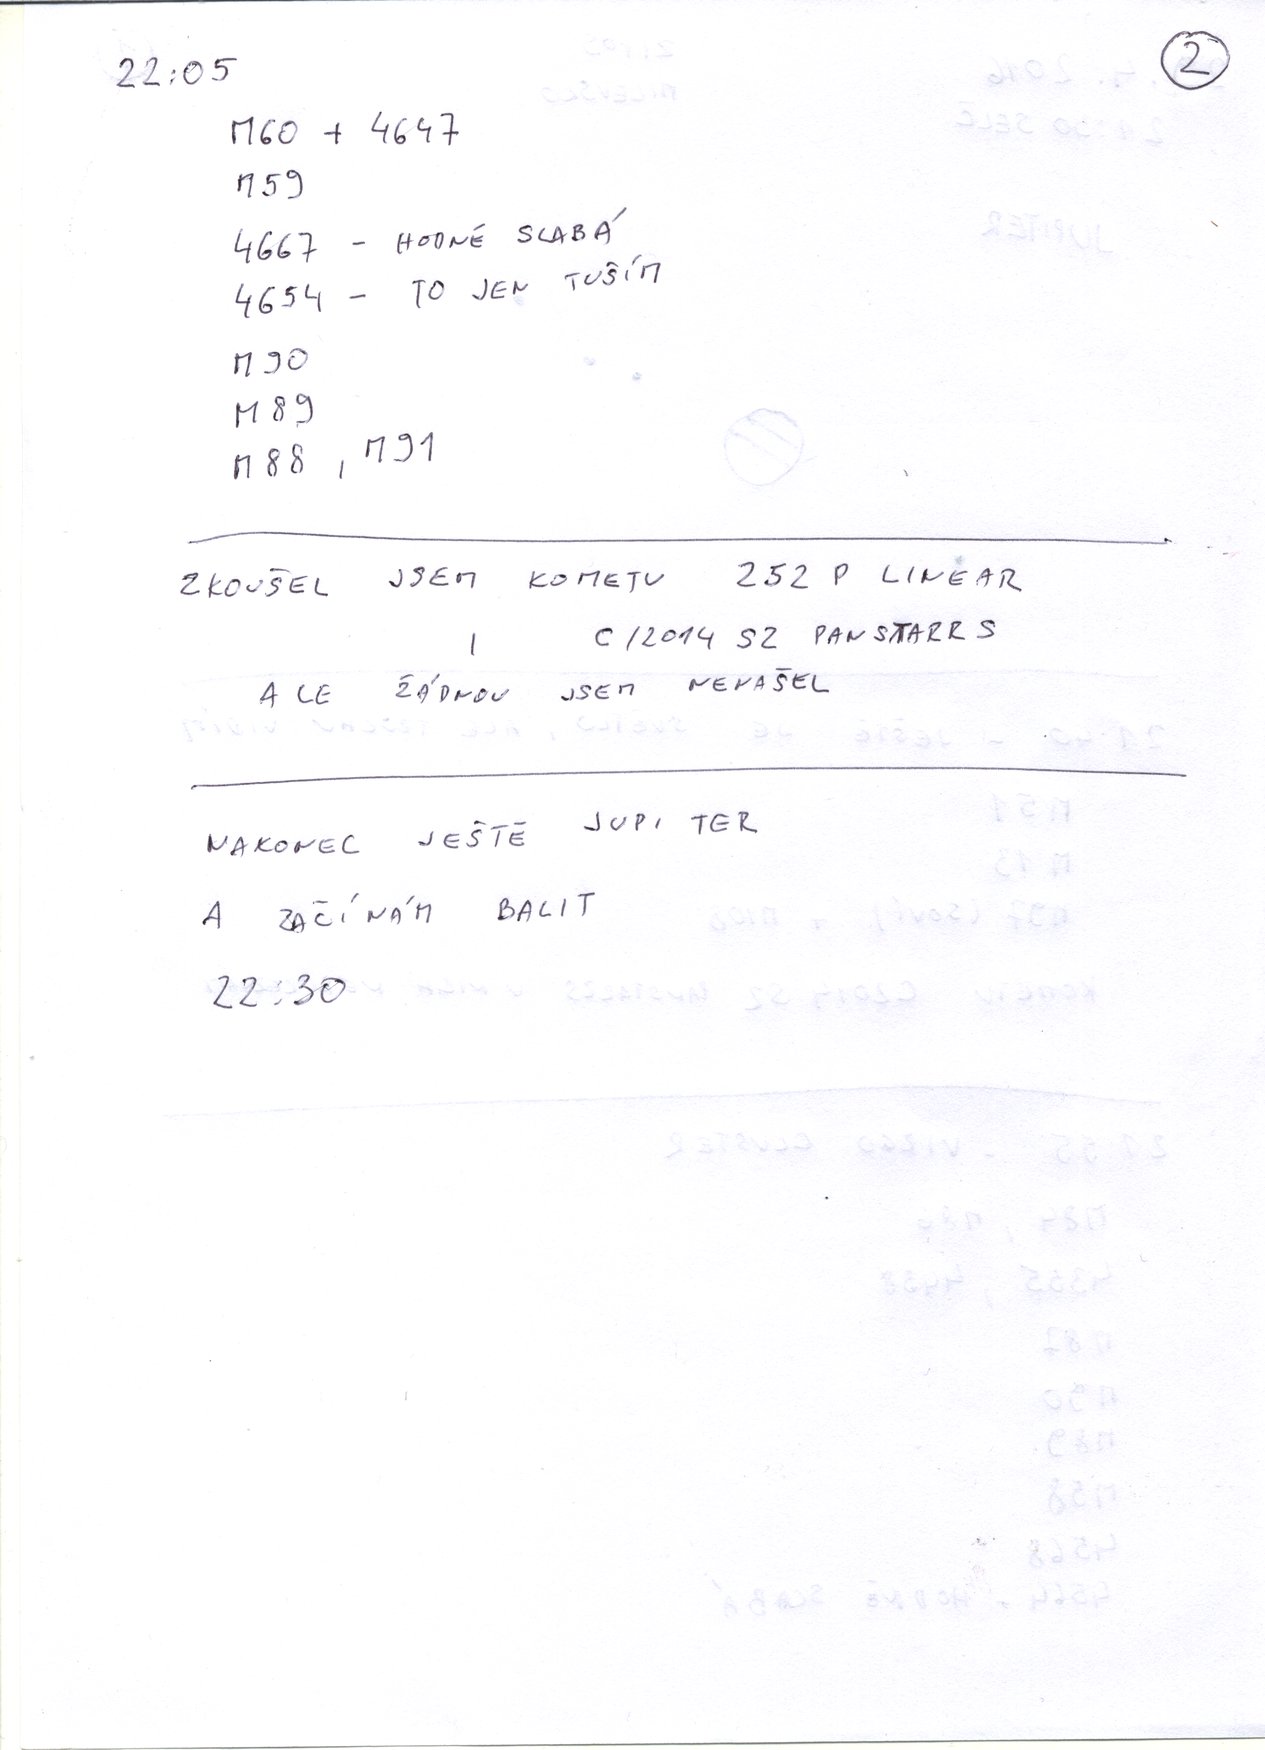 2
22:05
M60 + 4647
M59
4667 - HODNĚ SLABÁ
4654 - TO JEN TUŠÍM
M90
M89
M88, M91
ZKOUŠEL JSEM KOMETU 252 P LINEAR
I C/2014 S2 PANSTARRS
ALE ŽÁDNOU JSEM NENAŠEL
NAKONEC JEŠTĚ JUPITER
A ZAČÍNÁM BALIT
22:30